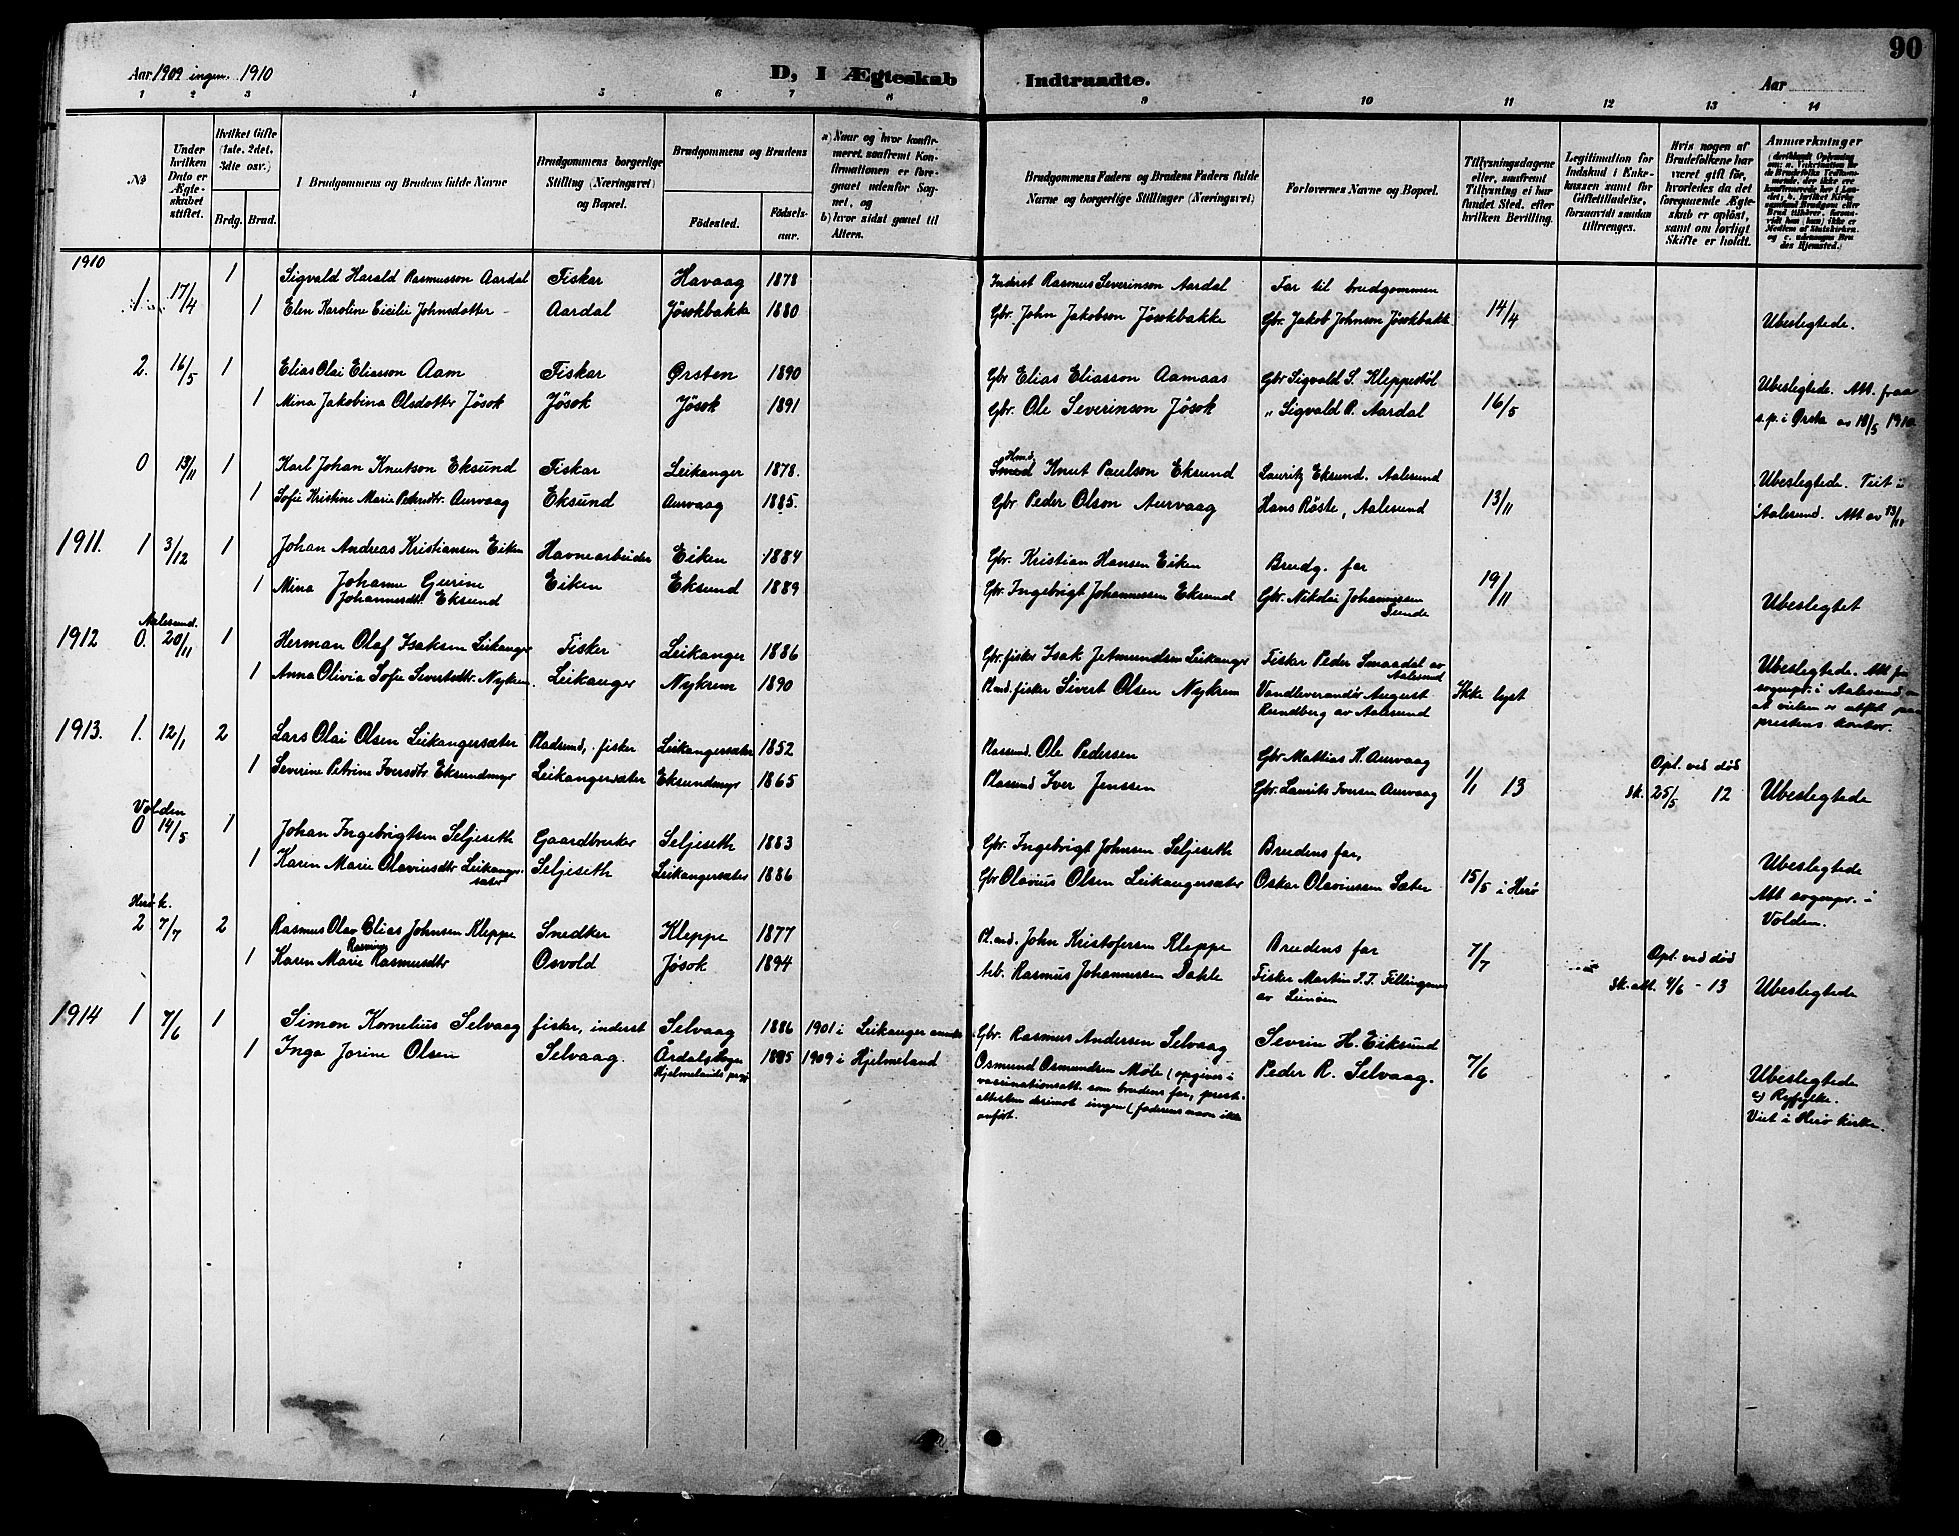 90
Aar 1909 ingen. 1910
D, I Ægteskab Indtraadte.
Aar
1 2 3 4 5 6 7 8 9 10 11 12 13 14
No
Under hvilken Dato er Ægteskabet stiftet.
Hvilket Gifte (1ste, 2det, 3die osv.)
Brdg. Brud.
I Brudgommens og Brudens fulde Navne
Brudgommens borgerlige Stilling (Næringsvei) og Bopæl.
Brudgommens og Brudens
Fødested. Fødselsaar.
a) Naar og hvor konfirmeret, saafremt Konfirmationen er foregaaet udenfor Sognet, og
b) hvor sidst gaaet til Alters.
Brudgommens Faders og Brudens Faders fulde Navne og borgerlige Stillinger (Næringsvei)
Forlovernes Navne og Bopæl.
Tillysningsdagene eller, saafremt Tillysning ei har fundet Sted, efter hvilken Bevilling.
Legitimation for Indskud i Enkekassen samt for Giftetilladelse, forsaavidt saadan tiltrænges.
Hvis nogen af Brudefolkene har været gift før, hvorledes da det foregaaende Ægteskab er opløst, samt om lovligt Skifte er holdt.
Anmærkninger
1910
1 17/4 1 Sigvald Harald Rasmusson Aardal Fiskar Havaag 1878 Inderst Rasmus Severinson Aardal Far til brudgommen
1 Elen Karoline Cicilie Johnsdotter Aardal Jösokbakke 1880 Gbr. John Jakobson Jösokbakke Gbr. Jakob Johnson Jösokbakk 14/4 Ubeslegtede.
2. 16/5 1 Elias Olai Eliasson Aam Fiskar Ørsten 1890 Gbr Elias Eliasson Aamaas Gbr Sigvald S. Kleppestöl Ubeslegtede. Att. fraa
1 Mina Jakobina Olsdotter Jösok Jösok Jösok 1891 Gbr. Ole Severinson Jösok " Sigvald R. Aardal 16/5 s.p. i Ørsta av 18/5 1910
0 13/11 1 Karl Johan Knutson Eksund Fiskar Leikanger 1878. Knut Paulson Eksund Lauritz Eksund. Aalesund Ubeslegtede. Viet i
1 Sofie Kristine Marie Petersdtr. Aurvaag Eksund Aurvaag 1885. Gbr Peder Olson Aurvaag Hans Röste, Aalesund 13/11 Aalesund. Att av 13/11
1911. 1 3/12 1 Johan Andreas Kristiansen Eiken Havnearbeider Eiken 1884 Gbr. Kristian Hansen Eiken Brudg. far
1 Mina Johanne Gurine Johannesdtr. Eksund Eiken Eksund 1889 Gbr. Ingebrigt Johannessen Eksund Gbr. Nikolai Johannessen 19/11 Ubeslegtet
Aalesund.
1912 0. 20/11 1 Herman Olaf Isaksen Leikanger Fisker Leikanger 1886 Gbr. fisker Isak Jetmundsen Leikanger Fisker Peder Smaadal av Aalesund Ubeslegtede. Att fra
1 Anna Olivia Sofie Sivertsdtr. Nykrem. Leikanger Nykrem 1890 Pl.md. fisker Sivert Olsen Nykrem Vandleverandör August Rundberg av Aalesund Ikke lyst sognpr. i Aalesund om at vielsen er utført paa prestens kontor.
1913. 1. 12/1 2 Lars Olai Olsen Leikangersæter Pladsmd, fisker Leikangersæter 1852 Plassmd. Ole Pedersen Gbr Mathias K. Aurvaag Opl. ved død
1 Severine Petrine Iversdtr Eksundmyr Leikangersæter Eksundmyr 1865 Plassmd Iver Jenssen Gbr. Laurits Iversen Aurvaag 1/1 13 Sk. 25/5 12 Ubeslegtede
Volden
0 14/5 1 Johan Ingebrigtsen Seljeseth Gaardbruker Seljeseth 1883 Gbr. Ingebrigt Johnsen Seljeseth Brudens far, Ubeslegtede
1 Karen Marie Olaviusdtr Leikangersæter Seljeseth Leikangersæter 1886 Gbr Olavius Olsen Leikangersæter Oskar Olaviussen Sæter 15/5 i Herø Att sognpr. i Volden.
Herø k.
2 7/7 2 Rasmus Olav Elias Johnsen Kleppe Snedker Kleppe 1877 Pl.md. John Kristofersen Kleppe Brudens far Opl. ved død
1 Karen Marie Rasmine Rasmusdtr Osvold Jøsok 1894 Arb. Rasmus Johannessen Dahle Fisker Martin J.T. av Leinöen 7/7 Sk. att. 4/6 - 13 Ubeslegtede
1914 1 7/6 1 Simon Kornelius Selvaag fisker, inderst Selvaag 1886 1901 i Leikanger Gbr. Rasmus Andersen Selvaag Sevrin H. Eiksund
1 Inga Jorine Olsen Selvaag. Årdals sogn Hjelmelands prgj. 1885 1909 i Hjelmeland Osmund Osmundsen Møle (opgives i vaccinationsatt. som brudens far, prestattesten derimot ingen (faderens navn ikke anført. Peder R. Selvaag. 7/6 Ubeslegtede
c) Ryfylke.
Viet i Herø kirke.